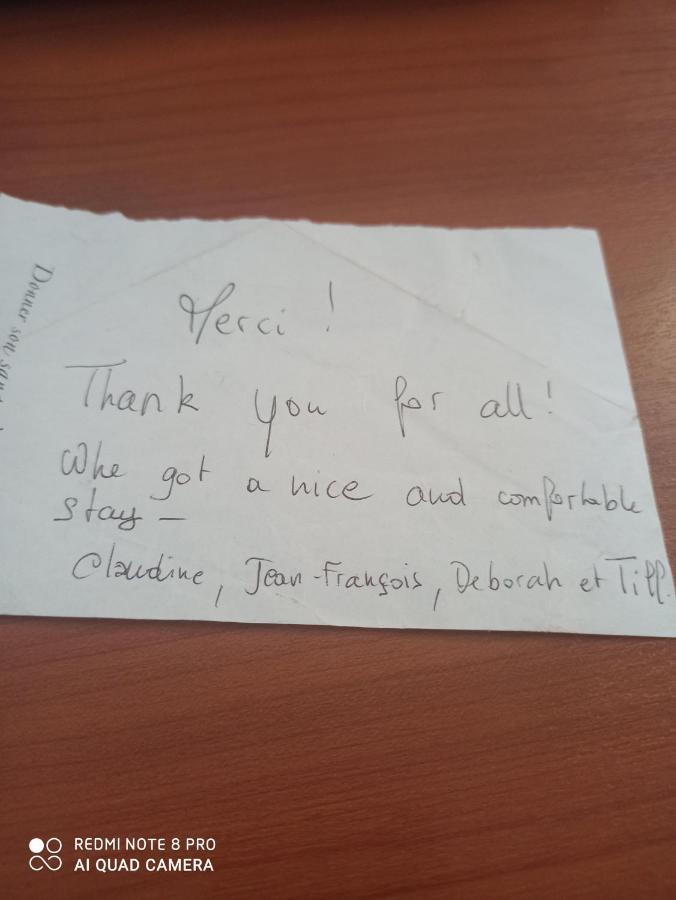 Merci !
Thank you for all!
Whe got a nice and comfortable
stay –
Claudine, Jean-François, Deborah et Till.
Donner son sang
REDMI NOTE 8 PRO
AI QUAD CAMERA